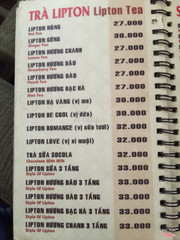 TRÀ LIPTON Lipton Tea
LIPTON NÓNG 27.000
Hot Tea
LIPTON GỪNG 27.000
Ginger Tea
LIPTON HƯƠNG CHANH 27.000
Lemon Tea
LIPTON HƯƠNG DÂU 27.000
Strawberry Tea
LIPTON HƯƠNG ĐÀO 27.000
Peach Tea
LIPTON HƯƠNG BẠC HÀ 27.000
Mint Tea
LIPTON HẠ VÀNG (vị mơ) 30.000
LIPTON BE COOL (vị dâu) 30.000
LIPTON ROMANCE (vị sữa tươi) 32.000
LIPTON LOVE (vị xí muội) 32.000
TRÀ SỮA SOCOLA 32.000
Chocolate With Milk
LIPTON SỮA 3 TẦNG 33.000
Style Of Lipton
LIPTON HƯƠNG DÂU 3 TẦNG 33.000
Style Of Lipton
LIPTON HƯƠNG ĐÀO 3 TẦNG 33.000
Style Of Lipton
LIPTON HƯƠNG BẠC HÀ 3 TẦNG 33.000
Style Of Lipton
LIPTON HƯƠNG CHANH 3 TẦNG 33.000
Style Of Lipton